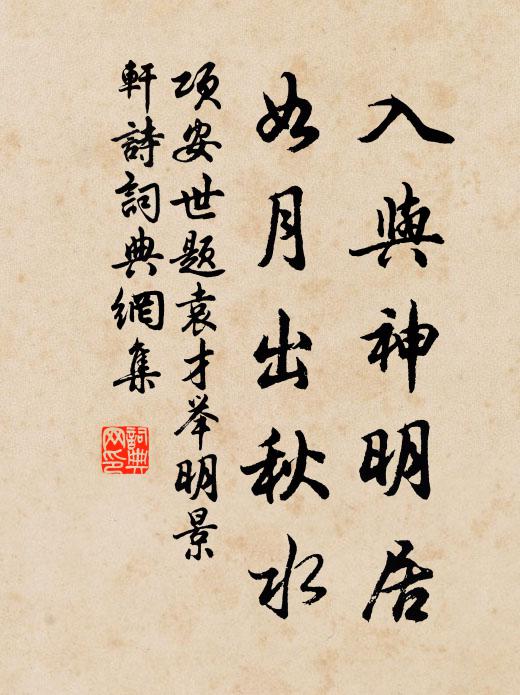 入與神明居
如月出秋水
项安世题袁才举明景
軒詩詞典網集
詞典
网印